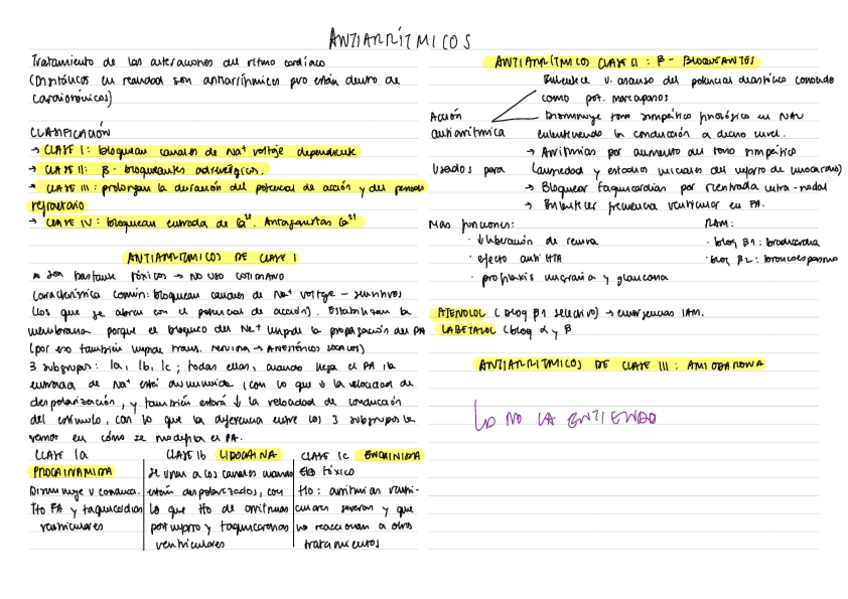 ANTIARRÍTMICOS
Tratamiento de las alteraciones del ritmo cardíaco
(Digitálicos en realidad son antiarrítmicos pero están dentro de
cardiotónicos)
CLASIFICACIÓN
→ CLASE I: bloquean canales de Na+ voltaje dependiente
→ CLASE II: β-bloqueantes adrenérgicos.
→ CLASE III: prolongan la duración del potencial de acción y del periodo
refractario
→ CLASE IV: bloquean entrada de Ca2+. Antagonistas Ca2+
ANTIARRITMICOS DE CLASE I
son bastante tóxicos → NO USO COTIDIANO
Característica común: bloquean canales de Na+ voltaje - sensitivos
(los que se abren con el potencial de acción). Estabilizan la
membrana porque el bloqueo del Na+ impide la propagación del PA
(por eso también impide trans. nerviosa → ANESTÉSICOS LOCALES)
3 subgrupos: Ia, Ib, Ic; todas ellas, cuando llega el PA, la
entrada de Na+ está disminuida, con lo que ↓ la velocidad de
despolarización, y también estará ↓ la velocidad de conducción
del estímulo, con lo que la diferencia entre los 3 subgrupos la
vemos en cómo se modifica el PA.
CLASE Ia
PROCAINAMIDA
Disminuye v conducc.
tto FA y taquicardias
ventriculares
CLASE Ib LIDOCAINA
Se unen a los canales cuando
están despolarizados, con
lo que tto de arritmias
post infarto y taquicardias
ventriculares
CLASE Ic ENCAINIDA
tóxico
tto: arritmias ventri-
culares severas y que
no reaccionan a otros
tratamientos
ANTIARRÍTMICOS CLASE II: β-BLOQUEANTES
Acción
antiarrítmica
Enlentece v. ascenso del potencial diastólico conocido
como pot. marcapasos
Disminuye tono simpático fisiológico en NAV
enlenteciendo la conducción a dicho nivel.
Usados para
→ Arritmias por aumento del tono simpático
(ansiedad y estadios iniciales del infarto de miocardio)
→ Bloquear taquicardias por reentrada intra-nodal
→ Enlentecer frecuencia ventricular en FA.
Más funciones:
· ↓ liberación de renina
· efecto anti HTA
· profilaxis migraña y glaucoma
RAM:
· bloq β1: bradicardia
· bloq β2: broncoespasmo
ATENOLOL (bloq β1 selectivo) → emergencias IAM.
LABETALOL (bloq α y β
ANTIARRITMICOS DE CLASE III: AMIODARONA
NO LA ENTIENDO